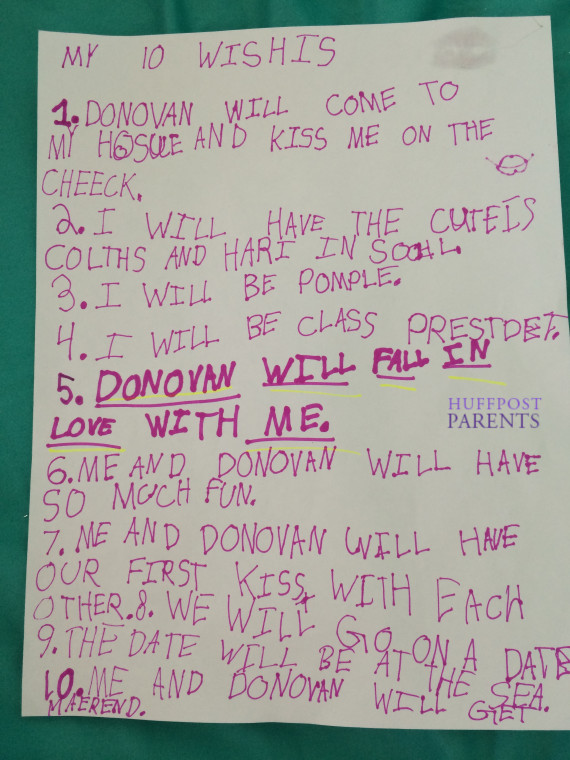 MY 10 WISHIS
1. DONOVAN WILL COME TO
MY HOSUE AND KISS ME ON THE
CHEECK.
2. I WILL HAVE THE CUTEIS
COLTHS AND HARI IN SCOHL.
3. I WILL BE POMPLE.
4. I WILL BE CLASS PRESTDET.
5. DONOVAN WILL FALL IN
LOVE WITH ME.
HUFFPOST
PARENTS
6. ME AND DONOVAN WILL HAVE
SO MUCH FUN.
7. ME AND DONOVAN WILL HAVE
OUR FIRST KISS WITH EACH
OTHER. 8. WE WILL GO ON A DATE
9. THE DATE WILL BE AT THE SEA.
10. ME AND DONOVAN WILL GIET
MAEREND.